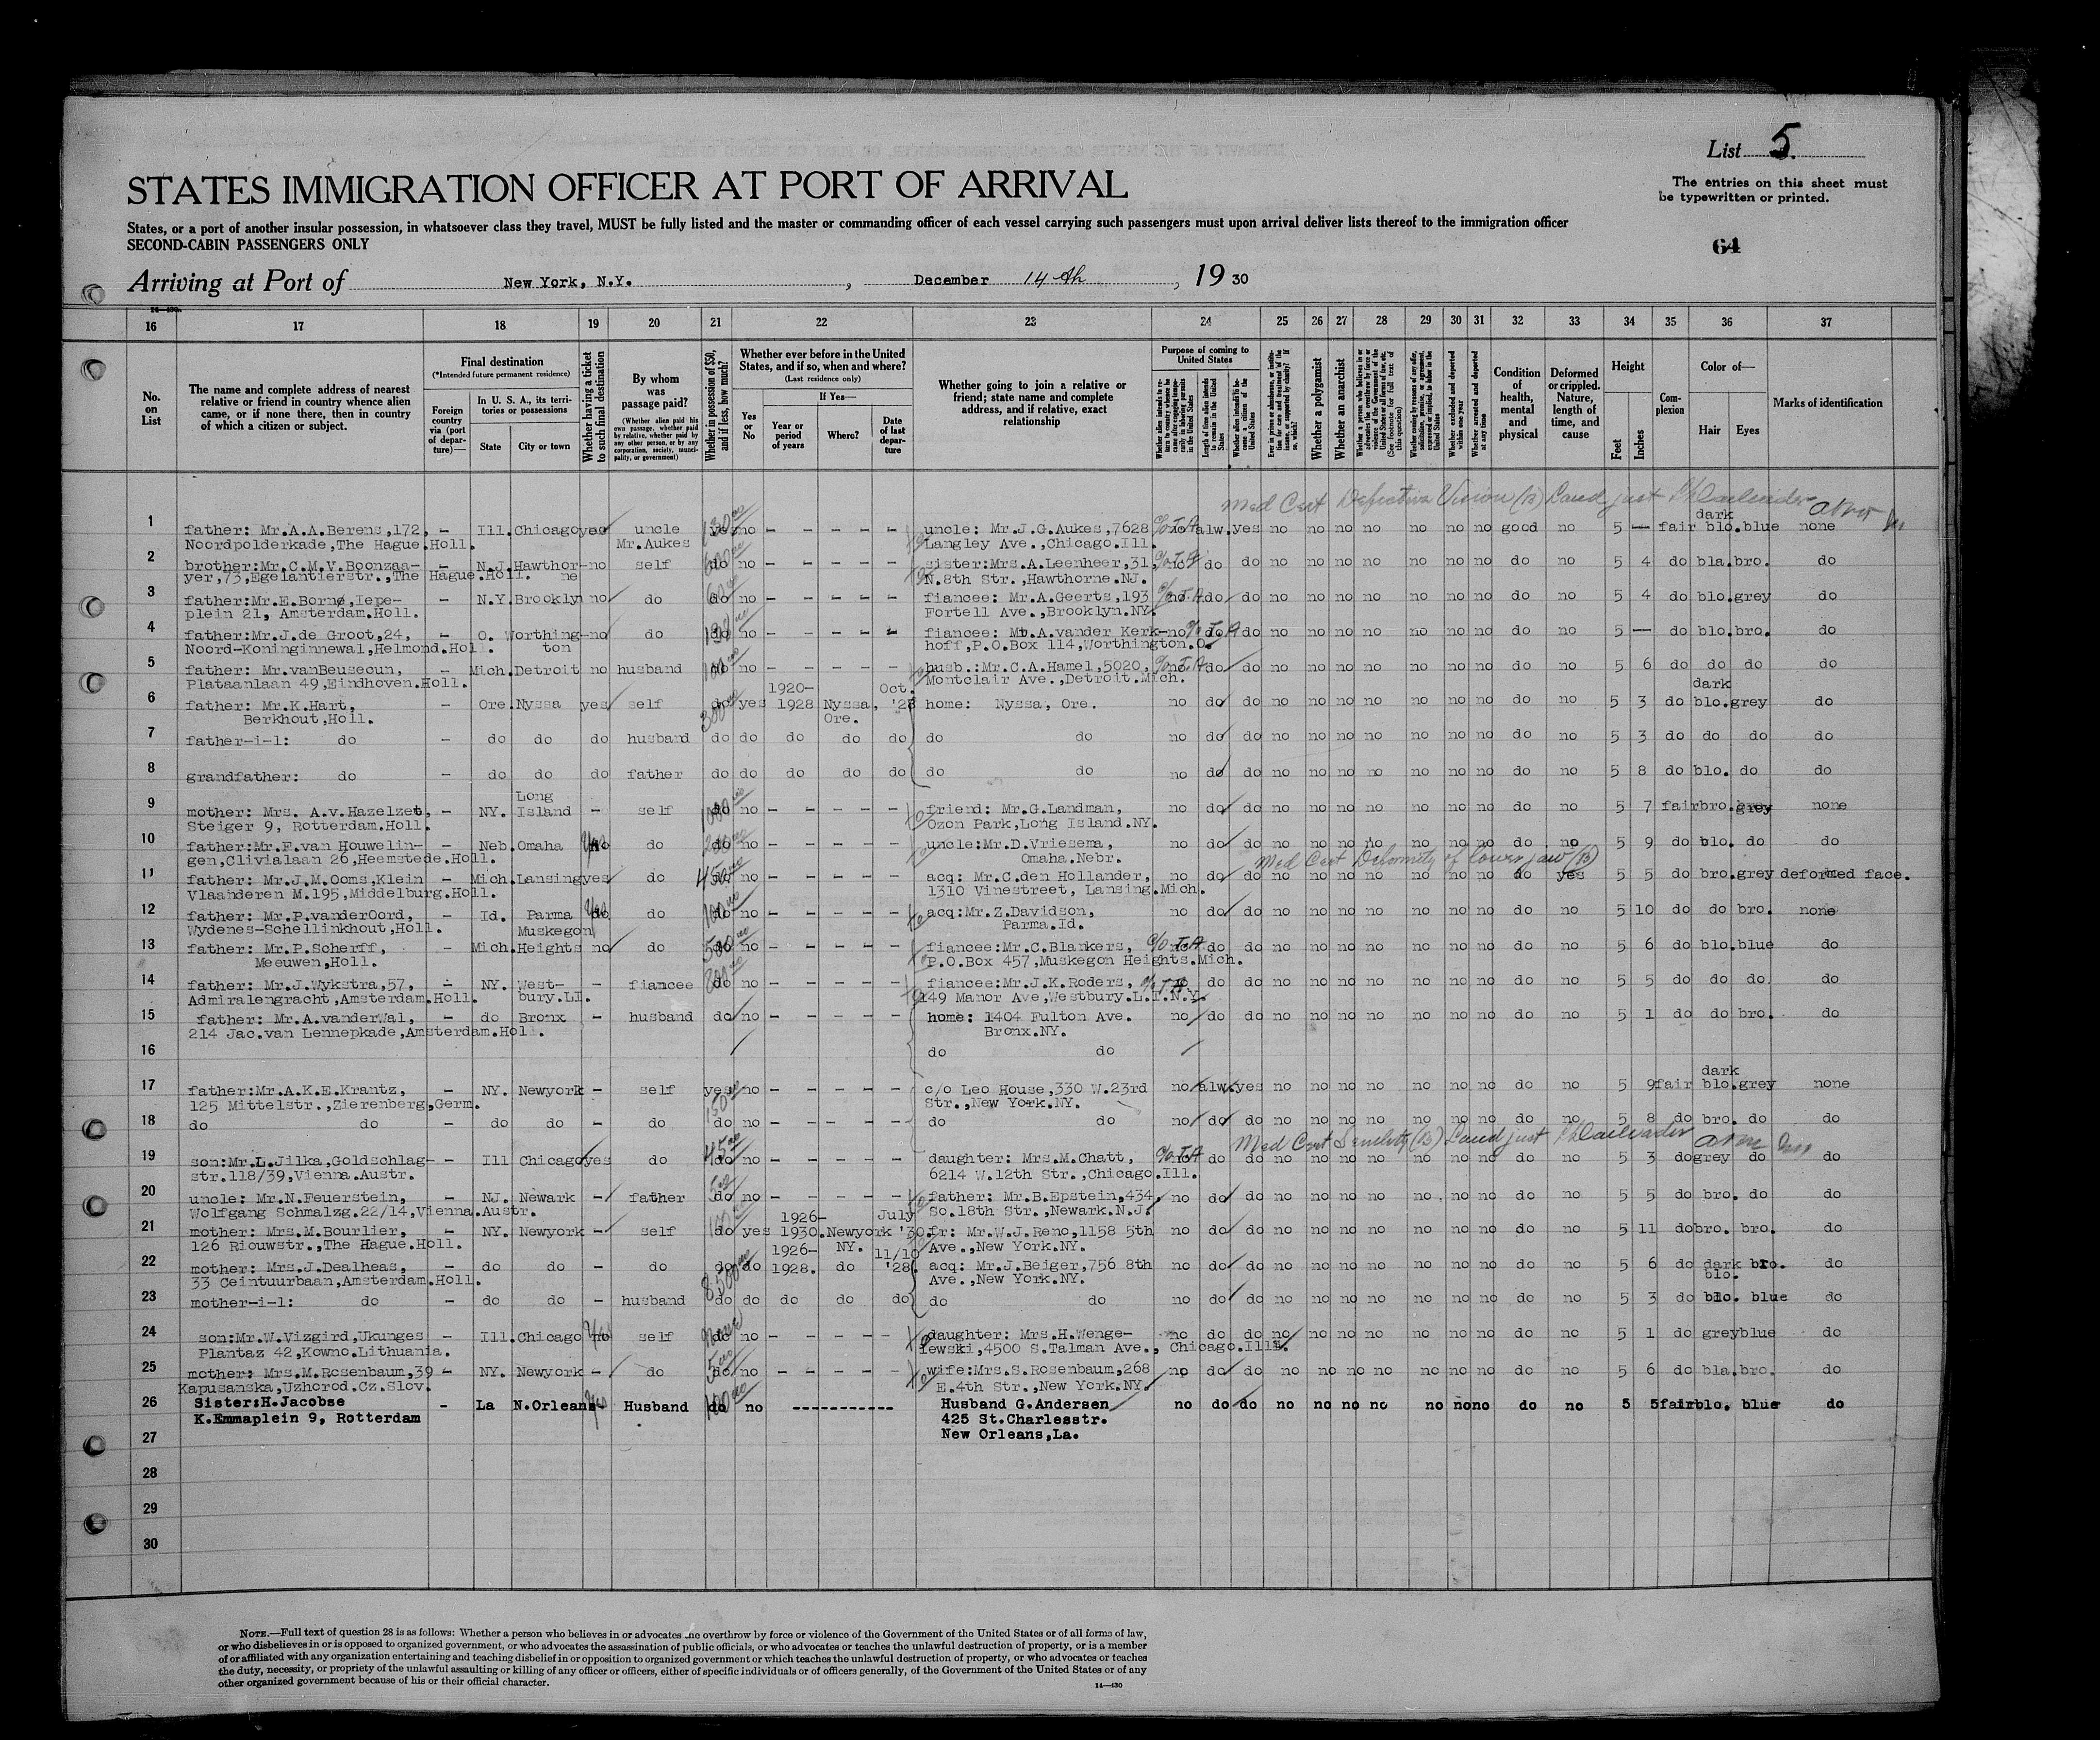 List 5.
STATES IMMIGRATION OFFICER AT PORT OF ARRIVAL
The entries on this sheet must
be typewritten or printed.
States, or a port of another insular possession, in whatsoever class they travel, MUST be fully listed and the master or commanding officer of each vessel carrying such passengers must upon arrival deliver lists thereof to the immigration officer
SECOND-CABIN PASSENGERS ONLY
64
Arriving at Port of New York, N.Y. , December 14th , 1930
16 17 18 19 20 21 22 23 24 25 26 27 28 29 30 31 32 33 34 35 36 37
No. on List
The name and complete address of nearest relative or friend in country whence alien came, or if none there, then in country of which a citizen or subject.
Final destination
(*Intended future permanent residence)
Foreign country via (port of departure)—
In U. S. A., its territories or possessions
State City or town
Whether having a ticket to such final destination
By whom was passage paid?
(Whether alien paid his own passage, whether paid by relative, whether paid by any other person, or by any corporation, society, municipality, or government)
Whether in possession of $50, and if less, how much?
Whether ever before in the United States, and if so, when and where?
(Last residence only)
Yes or No
If Yes—
Year or period of years Where? Date of last departure
Whether going to join a relative or friend; state name and complete address, and if relative, exact relationship
Purpose of coming to United States
Whether a polygamist
Whether an anarchist
Condition of health, mental and physical
Deformed or crippled. Nature, length of time, and cause
Height
Feet Inches
Complexion
Color of—
Hair Eyes
Marks of identification
Med Cert Defective Vision (B)
1 father: Mr.A.A.Berens,172, – Ill. Chicago yes uncle yes no – – – – – uncle: Mr.J.G.Aukes,7628 no alw. yes no no no no no no no good no 5 — fair dark blo. blue none
Noordpolderkade,The Hague.Holl. Mr.Aukes Langley Ave.,Chicago.Ill.
2 brother:Mr.C.M.V.Boonzaa- – N.J. Hawthor- no self do no – – – – – sister:Mrs.A.Leenheer,31, no do do no no no no no no no do no 5 4 do bla. bro. do
yer,73,Egelantierstr.,The Hague.Holl. ne N.8th Str.,Hawthorne.NJ.
3 father:Mr.E.Borne,Iepe- – N.Y. Brooklyn no do do no – – – – – fiancee: Mr.A.Geerts,193 no do do no no no no no no no do no 5 4 do blo. grey do
plein 21, Amsterdam.Holl. Fortell Ave.,Brooklyn.NY.
4 father:Mr.J.de Groot,24, – O. Worthing- no do do no – – – – – fiancee: Mr.A.vander Kerk- no do do no no no no no no no do no 5 — do blo. bro. do
Noord-Koninginnewal,Helmond.Holl. ton hoff,P.O.Box 114,Worthington.O.
5 father: Mr.vanBeusecun, – Mich. Detroit no husband do no – – – – – husb.:Mr.C.A.Hamel,5020, no do do no no no no no no no do no 5 6 do do do do
Plataanlaan 49,Eindhoven.Holl. Montclair Ave.,Detroit.Mich.
6 father: Mr.K.Hart, – Ore. Nyssa yes self do yes 1920-1928 Nyssa, Ore. Oct. '28 home: Nyssa, Ore. no do do no no no no no no no do no 5 3 do dark blo. grey do
Berkhout,Holl.
7 father-i-l: do – do do do husband do do do do do do do no do do no no no no no no no do no 5 3 do do do do
8 grandfather: do – do do do father do do do do do do do no do do no no no no no no no do no 5 8 do blo. do do
9 mother: Mrs. A.v.Hazelzet, – NY. Long Island – self do no – – – – – friend: Mr.G.Landman, no do do no no no no no no no do no 5 7 fair bro. grey none
Steiger 9, Rotterdam.Holl. Ozon Park,Long Island.NY.
10 father:Mr.F.van Houwelin- – Neb. Omaha yes do do no – – – – – uncle:Mr.D.Vriesema, no do do no no no no no no no do no 5 9 do blo. do do
gen,Clivialaan 26,Heemstede.Holl. Omaha.Nebr.
Med Cert Deformity of lower jaw (B)
11 father: Mr.J.M.Ooms,Klein – Mich. Lansing yes do do no – – – – – acq: Mr.C.den Hollander, no do do no no no no no no no do yes 5 5 do bro. grey deformed face.
Vlaanderen M.195,Middelburg.Holl. 1310 Vinestreet, Lansing.Mich.
12 father: Mr.P.vanderOord, – Id. Parma yes do do no – – – – – acq:Mr.Z.Davidson, no do do no no no no no no no do no 5 10 do do bro. none
Wydenes-Schellinkhout,Holl. Parma.Id.
13 father: Mr.P.Scherff, – Mich. Muskegon Heights no do do no – – – – – fiancee:Mr.C.Blankers, no do do no no no no no no no do no 5 6 do blo. blue do
Meeuwen,Holl. P.O.Box 457,Muskegon Heights.Mich.
14 father: Mr.J.Wykstra,57, – NY. West- – fiancee do no – – – – – fiancee:Mr.J.K.Roders, do do no no no no no no no do no 5 5 do do do do
Admiralengracht,Amsterdam.Holl. bury.LI. 149 Manor Ave,Westbury.L.I.N.Y.
15 father: Mr.A.vanderWal, – do Bronx – husband do no – – – – – home: 1404 Fulton Ave. no do do no no no no no no no do no 5 1 do do bro. do
214 Jac.van Lennepkade,Amsterdam.Holl. Bronx.NY.
16 do do
17 father:Mr.A.K.E.Krantz, – NY. Newyork – self yes no – – – – – c/o Leo House,330 W.23rd no alw. yes no no no no no no no do no 5 9 fair dark blo. grey none
125 Mittelstr.,Zierenberg,Germ. Str.,New York.NY.
18 do do – do do – do do no – – – – – do do no do do no no no no no no no do no 5 8 do bro. do do
Med Cert Senility (B)
19 son:Mr.L.Jilka,Goldschlag- – Ill Chicago yes do do no – – – – – daughter: Mrs.M.Chatt, do do no no no no no no no do no 5 3 do grey do do
str.118/39,Vienna.Austr. 6214 W.12th Str.,Chicago.Ill.
20 uncle: Mr.N.Feuerstein, – NJ. Newark – father do no – – – – – father: Mr.B.Epstein,434, no do do no no no no no no no do no 5 5 do bro. do do
Wolfgang Schmalzg.22/14,Vienna.Austr. So.18th Str.,Newark.N.J.
21 mother: Mrs.M.Bourlier, – NY. Newyork – self do yes 1926-1930. Newyork NY. July '30 fr: Mr.W.J.Reno,1158 5th no do do no no no no no no no do no 5 11 do bro. bro. do
126 Riouwstr.,The Hague.Holl. Ave.,New York.NY.
22 mother: Mrs.J.Dealheas, – do do – do do do 1926-1928. do 11/10 '28 acq: Mr.J.Beiger,756 8th no do do no no no no no no no do no 5 6 do dark blo. bro. do
33 Ceintuurbaan,Amsterdam.Holl. Ave.,New York.NY.
23 mother-i-l: do – do do – husband do do do do do do do no do do no no no no no no no do no 5 3 do blo. blue do
24 son:Mr.W.Vizgird,Ukunges – Ill. Chicago yes self do no – – – – – daughter: Mrs.H.Wenge- no do do no no no no no no no do no 5 1 do grey blue do
Plantaz 42,Kowno.Lithuania. lewski,4500 S.Talman Ave., Chicago.Ill.
25 mother: Mrs.M.Rosenbaum,39 – NY. Newyork – do do no – – – – – wife:Mrs.S.Rosenbaum,268 no do do no no no no no no no do no 5 6 do bla. bro. do
Kapusanska,Uzhorod.Cz.Slov. E.4th Str.,New York.NY.
26 Sister:H.Jacobse – La N.Orleans Husband do no ----------- Husband G.Andersen no do do no no no no no no no do no 5 5 fair blo. blue do
K.Emmaplein 9, Rotterdam 425 St.Charlesstr.
27 New Orleans,La.
28
29
30
NOTE.—Full text of question 28 is as follows: Whether a person who believes in or advocates the overthrow by force or violence of the Government of the United States or of all forms of law,
or who disbelieves in or is opposed to organized government, or who advocates the assassination of public officials, or who advocates or teaches the unlawful destruction of property, or is a member
of or affiliated with any organization entertaining and teaching disbelief in or opposition to organized government or which teaches the unlawful destruction of property, or who advocates or teaches
the duty, necessity, or propriety of the unlawful assaulting or killing of any officer or officers, either of specific individuals or of officers generally, of the Government of the United States or of any
other organized government because of his or their official character.
14—430